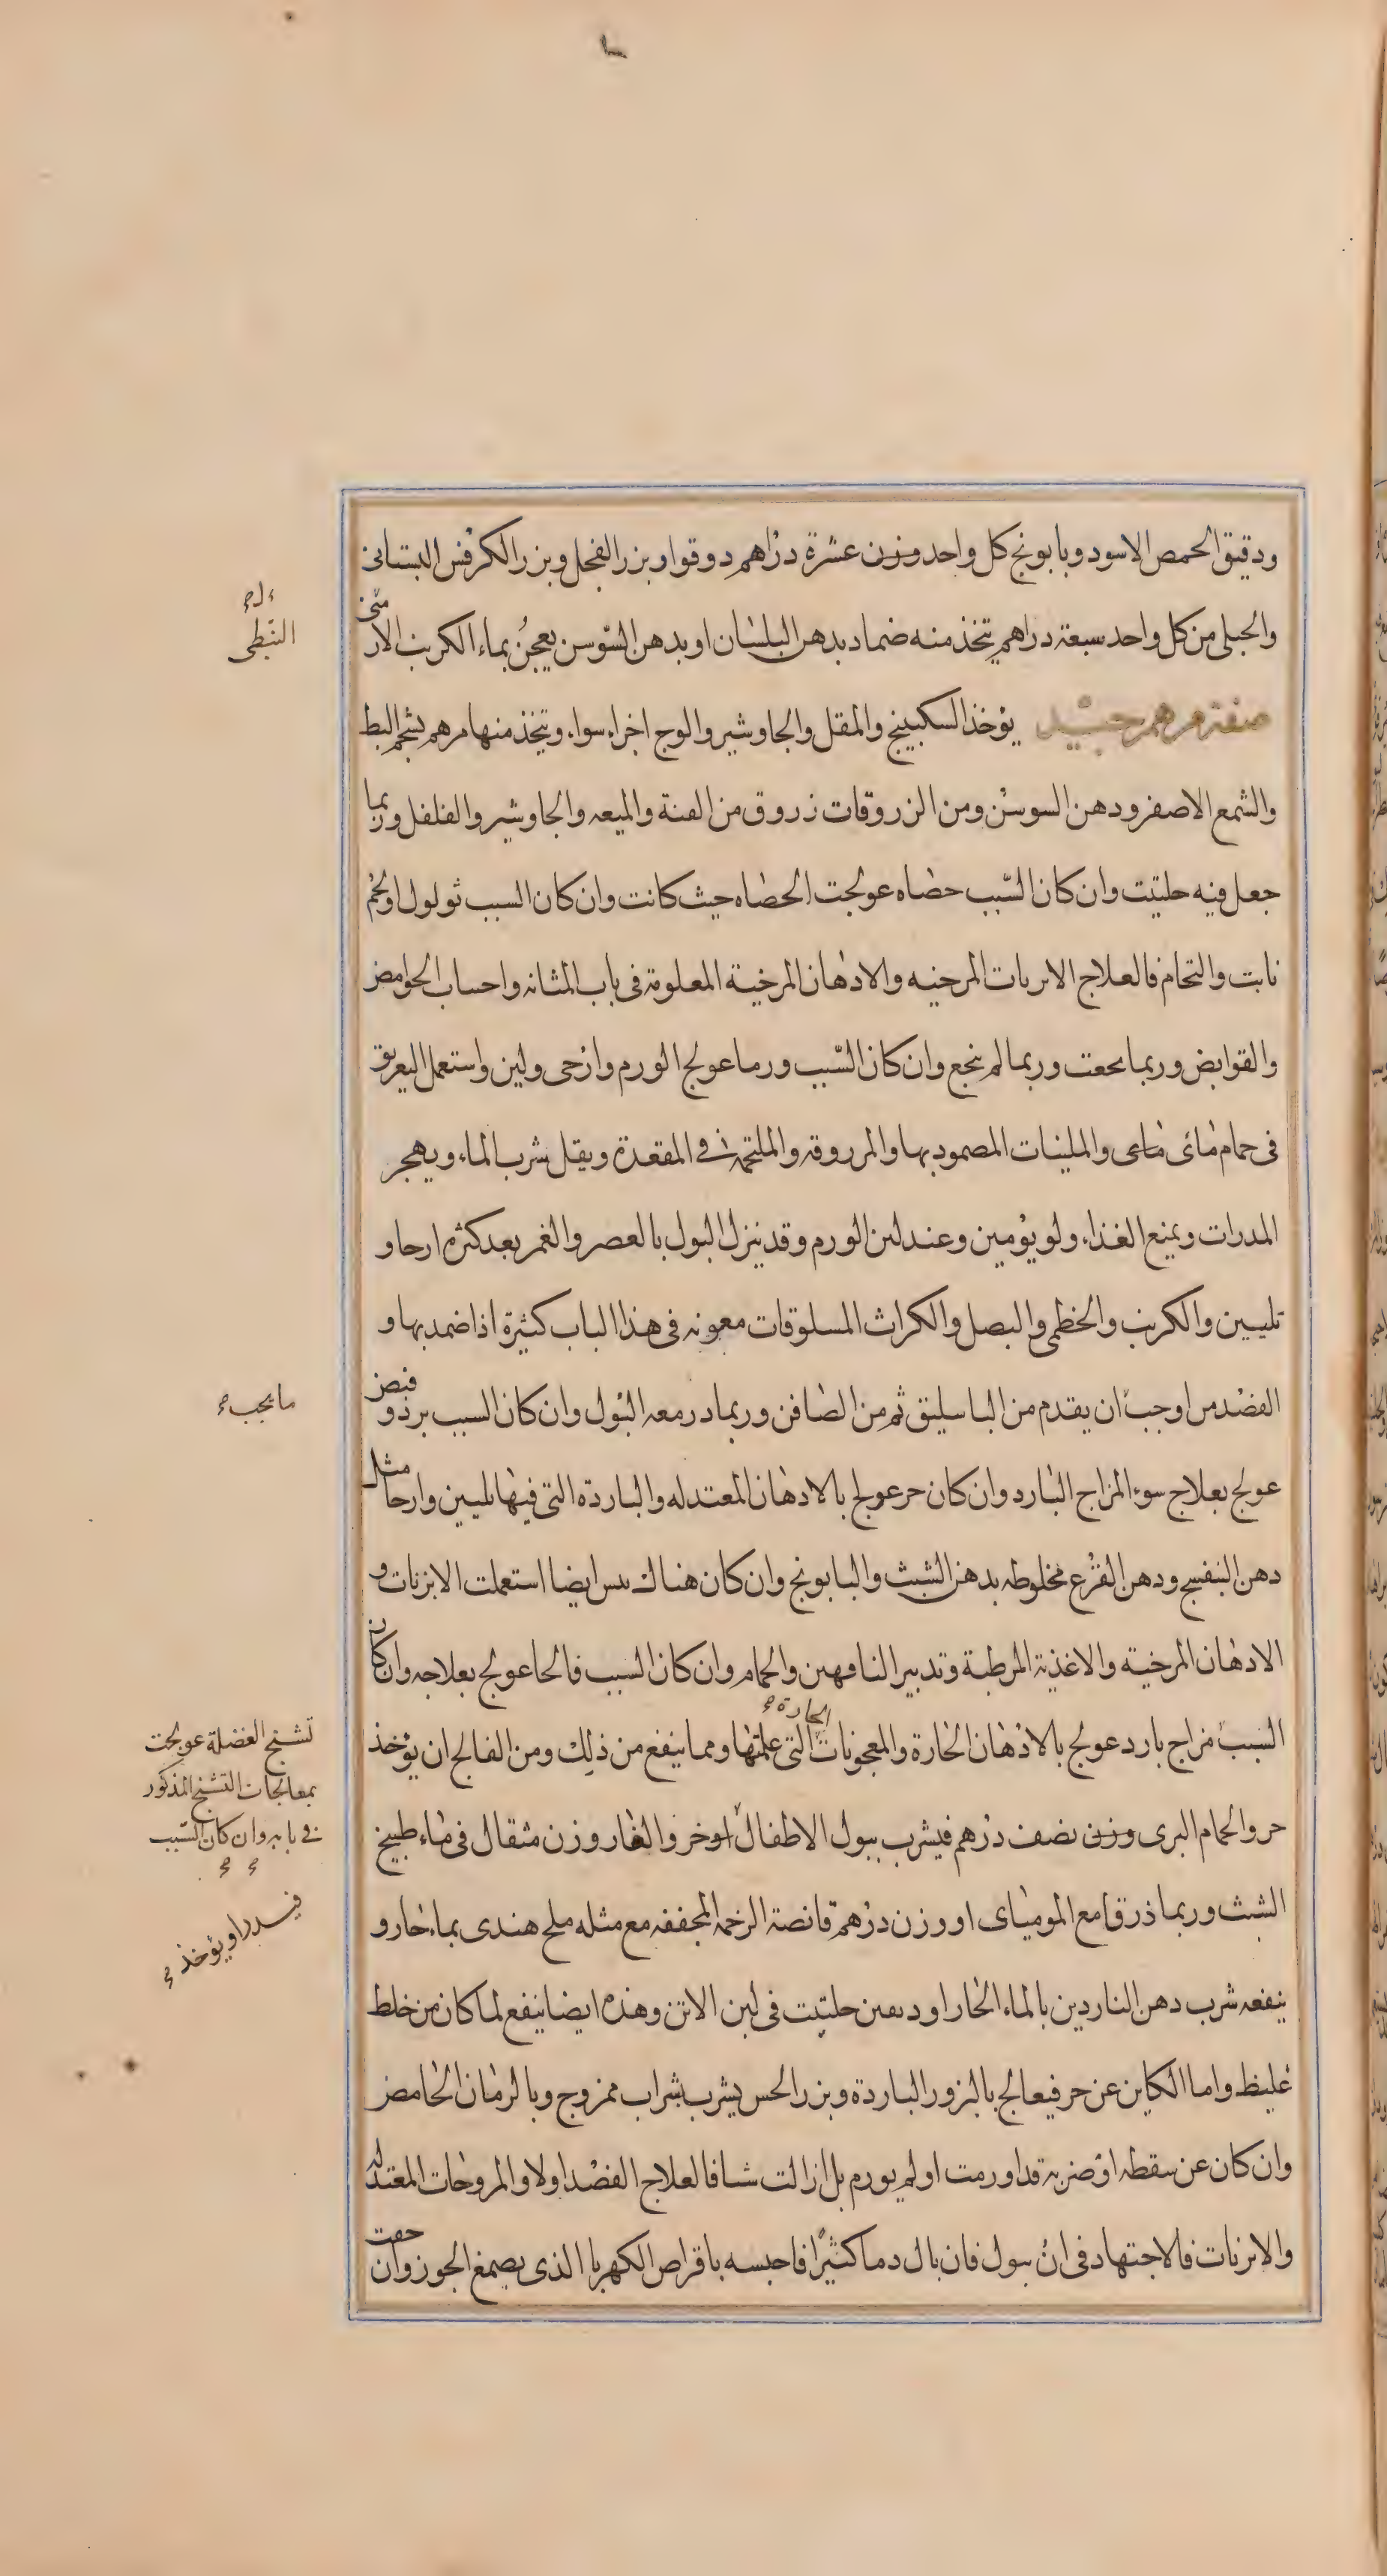 ودقيق الحمص الاسود وبابونج كل واحد وزن عشرة دراهم دوقوا وبزر الفجل وبزر الكرفس البستانى
والجبلى من كل واحد سبعة دراهم يتخذ منه ضماد بدهن البلسان او بدهن السوسن يعجن بماء الكرنب الارمنى
صفة مرهم جيد يؤخذ السكبينج والمقل والجاوشير والوج اجزاء سواء ويتخذ منها مرهم بشحم البط
والشمع الاصفر ودهن السوسن ومن الزروقات زروق من القنة والميعه والجاوشير والفلفل وربما
جعل فيه حلتيت وان كان السّبب حصاه عولجت الحصاه حيث كانت وان كان السبب ثولول او لحم
نابت والتحام فالعلاج الابزنات المرخيه والادهان المرخية المعلومة فى باب المثانه واحساب الحوامض
والقوابض وربما نجعت وربما لم ينجع وان كان السّبب ورما عولج الورم وارخى ولين واستعمل التعريق
فى حمام مائى مائى والملينات المضمود بها والمزروقه والملتحمة فى المقعدة ويقل شرب الماء ويهجر
المدرات ويمنع الغذاء ولو يؤمين وعند لين الورم وقد ينزل البول بالعصر والغمر بعد كثره ارخا و
تليين والكرنب والخطمى والبصل والكراث المسلوقات معونه فى هذا الباب كثيرة اذا ضمد بها و
الفصد من اوجب ان يقدم من الباسليق ثم من الصافن وربما در معه البول وان كان السبب برد وقبض
عولج بعلاج سوء المزاج البارد وان كان حر عولج بالادهان المعتدله والباردة التى فيها تليين وارخا مثل
دهن البنفسج ودهن القرع مخلوطه بدهن الشبث والبابونج وان كان هناك يبس ايضا استعملت الابزنات و
الادهان المرخية والاغذية المرطبة وتدبير الناقهين والحمام وان كان السبب فالحا عولج بعلاجه وان كان
السبب مزاج بارد عولج بالادهان الحارة والمعجونات الحارة التى علمتها ومما ينفع من ذلك ومن الفالج ان يؤخذ
خرو الحمام البرى وزن نصف درهم فيشرب ببول الاطفال او خرو الفار وزن مثقال فى ماء طبيخ
الشبث وربما ذرق مع الموميائى او وزن درهم قانصة الرخمه المجففه مع مثله ملح هندى بماء حار و
ينفعه شرب دهن الناردين بالماء الحار او دهن حلتيت فى لبن الاتن وهذه ايضا ينفع لما كان من خلط
غليظ واما الكاين عن حر فيعالج بالبزور الباردة وبزر الخس يشرب بشراب ممزوج وبالرمان الحامض
وان كان عن سقطه او ضربه قد اورمت او لم يورم بل ازالت شيا فالعلاج الفصد اولا والمروخات المعتدله
والابزنات فالاجتهاد فى ان يبول فان بال دما كثيرا فاحبسه باقراص الكهربا الذى بصمغ الجوز وان خفت
النّبطى
ما يجب
تشنج العضلة عولجت
بمعالجات التشنج المذكور
فى بابه وان كان السّبب
فيسدرا ويؤخذ